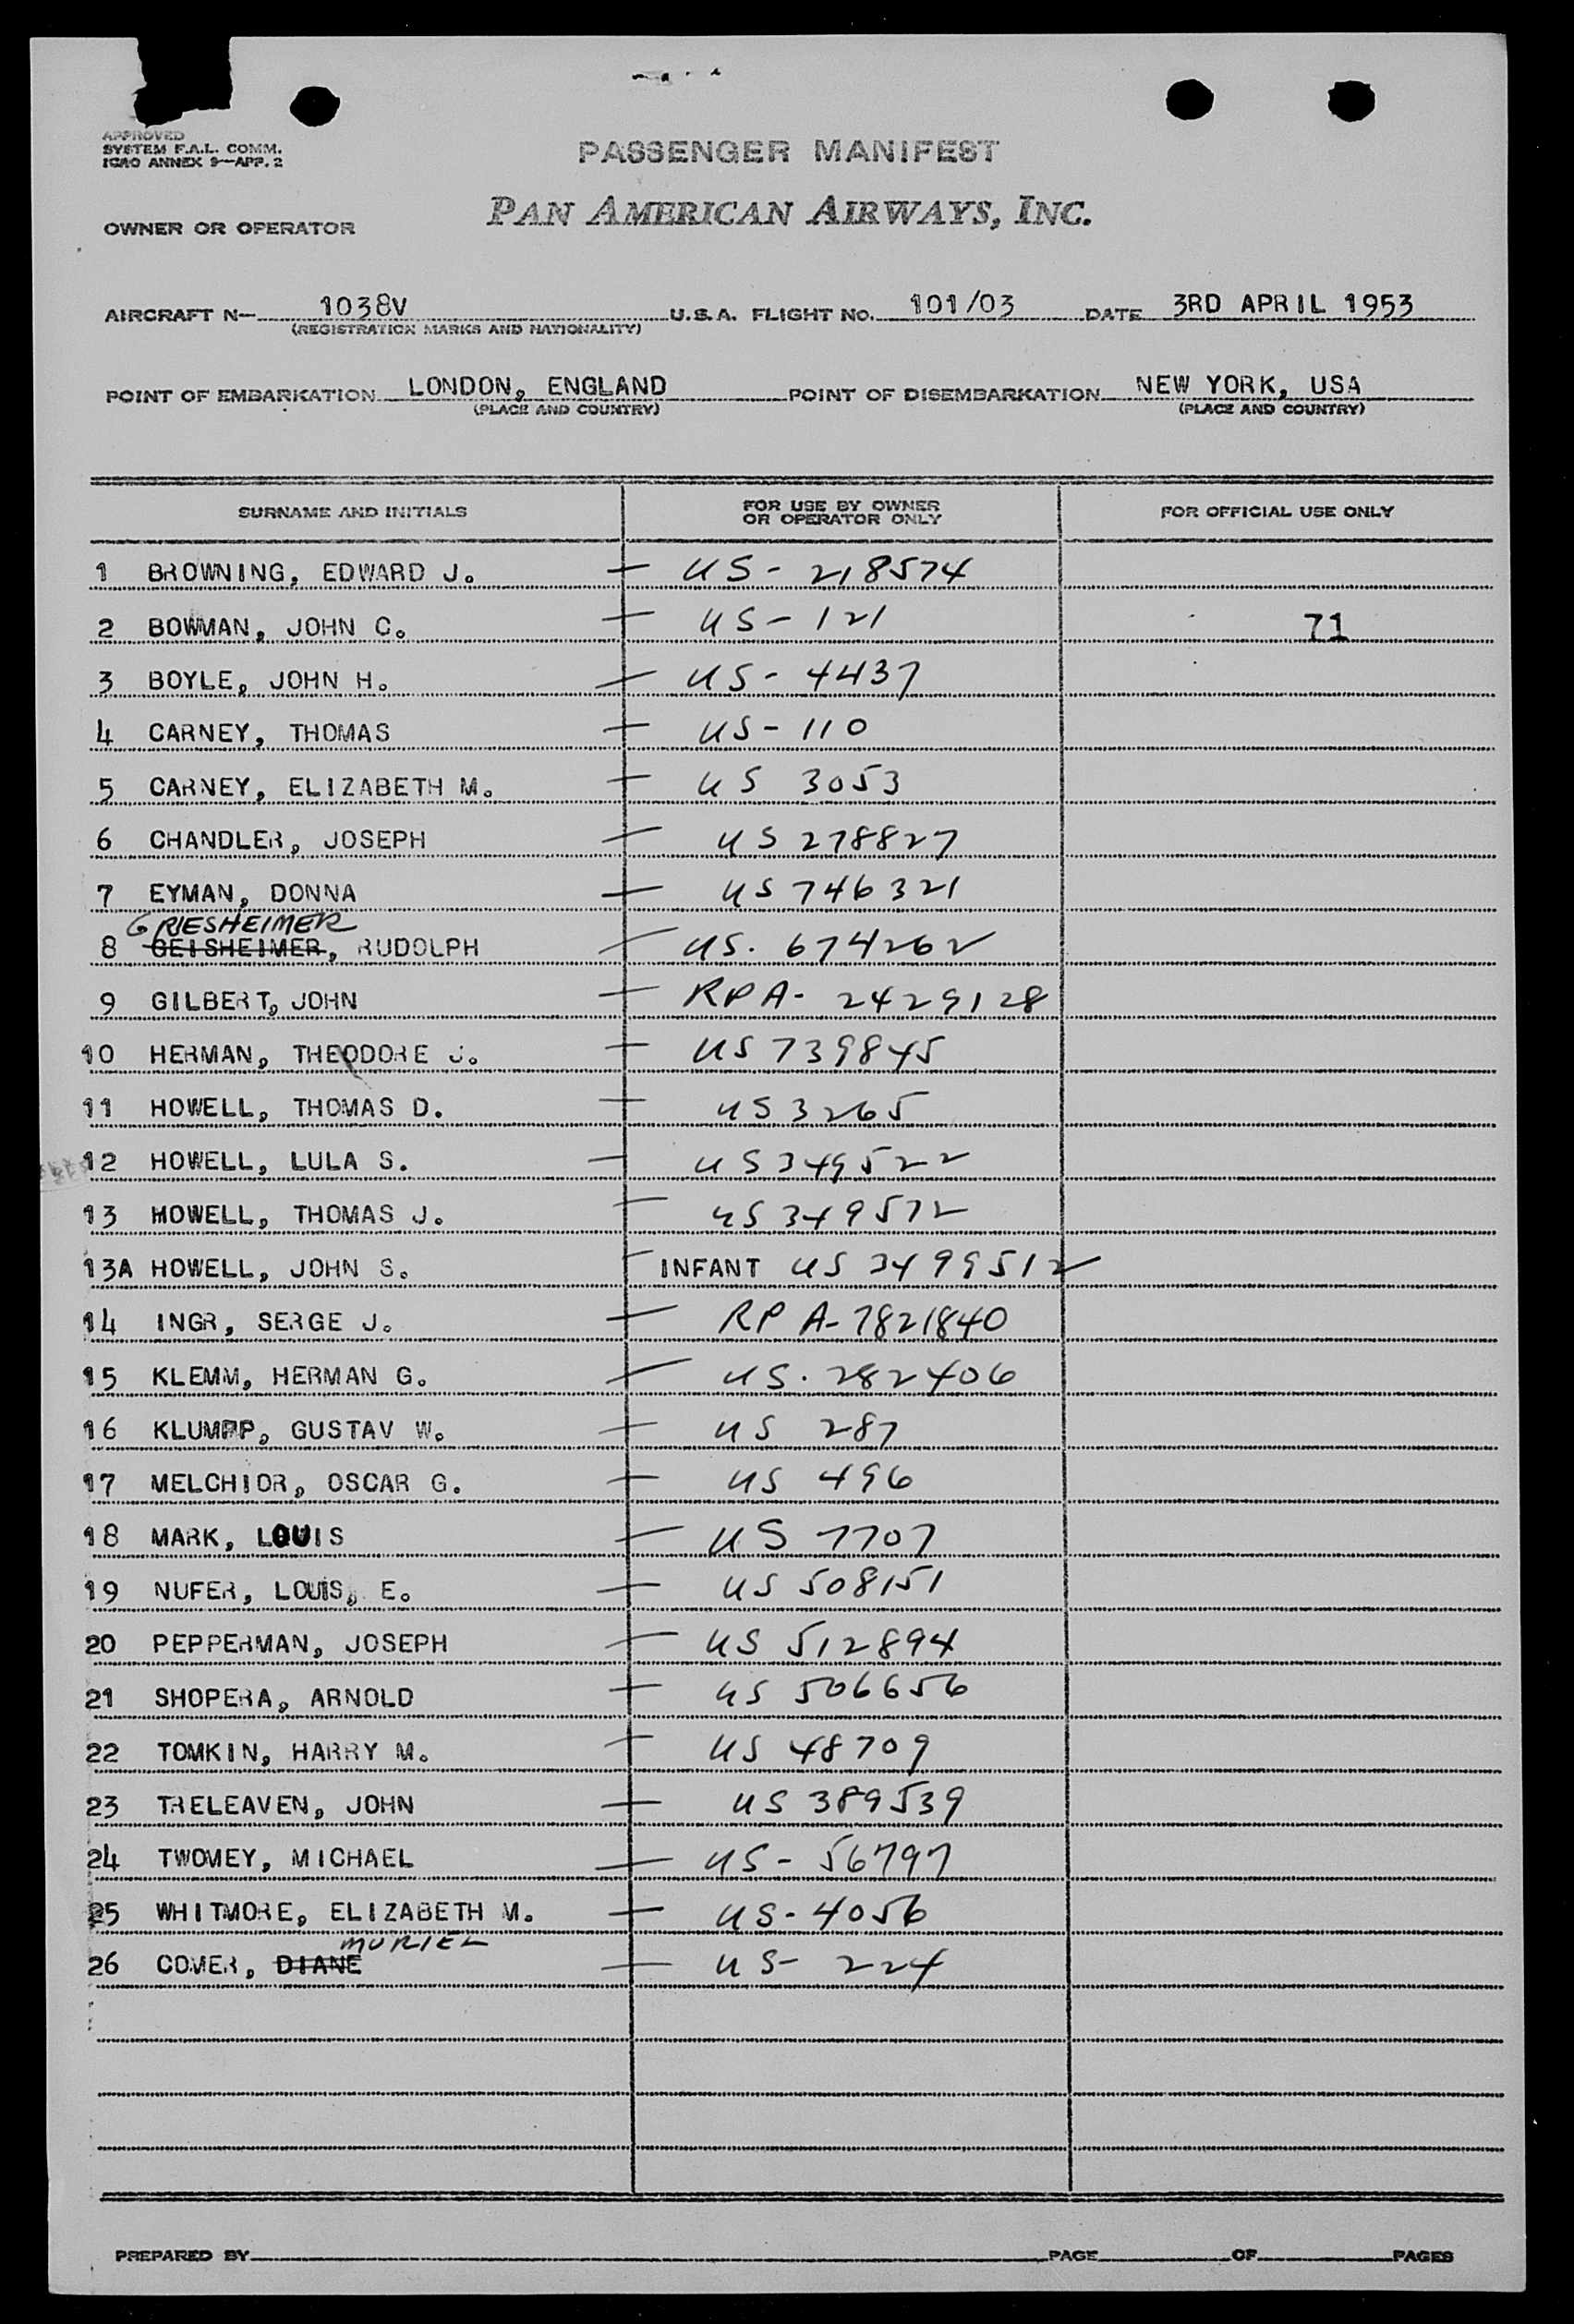 APPROVED
SYSTEM F.A.L. COMM.
ICAO ANNEX 9—APP. 2
PASSENGER MANIFEST
OWNER OR OPERATOR PAN AMERICAN AIRWAYS, INC.
AIRCRAFT N— 1038V U.S.A. FLIGHT NO. 101/03 DATE 3RD APRIL 1953
(REGISTRATION MARKS AND NATIONALITY)
POINT OF EMBARKATION LONDON, ENGLAND POINT OF DISEMBARKATION NEW YORK, USA
(PLACE AND COUNTRY) (PLACE AND COUNTRY)
SURNAME AND INITIALS FOR USE BY OWNER OR OPERATOR ONLY FOR OFFICIAL USE ONLY
1 BROWNING, EDWARD J. — US - 218574
2 BOWMAN, JOHN C. — US - 121 71
3 BOYLE, JOHN H. — US - 4437
4 CARNEY, THOMAS — US - 110
5 CARNEY, ELIZABETH M. — US 3053
6 CHANDLER, JOSEPH — US 278827
7 EYMAN, DONNA — US 746321
GRIESHEIMER
8 GEISHEIMER, RUDOLPH — US. 674262
9 GILBERT, JOHN — RPA - 2429128
10 HERMAN, THEODORE J. — US 739845
11 HOWELL, THOMAS D. — US 3265
12 HOWELL, LULA S. — US 349522
13 HOWELL, THOMAS J. — US 349512
13A HOWELL, JOHN S. — INFANT US 3499512
14 INGR, SERGE J. — RP A-7821840
15 KLEMM, HERMAN G. — US. 282406
16 KLUMPP, GUSTAV W. — US 287
17 MELCHIOR, OSCAR G. — US 496
18 MARK, LOUIS — US 7707
19 NUFER, LOUIS, E. — US 508151
20 PEPPERMAN, JOSEPH — US 512894
21 SHOPERA, ARNOLD — US 506656
22 TOMKIN, HARRY M. — US 48709
23 TRELEAVEN, JOHN — US 389539
24 TWOMEY, MICHAEL — US - 56797
25 WHITMORE, ELIZABETH M. — US - 4056
MURIEL
26 COMER, DIANE — US - 224
PREPARED BY PAGE OF PAGES